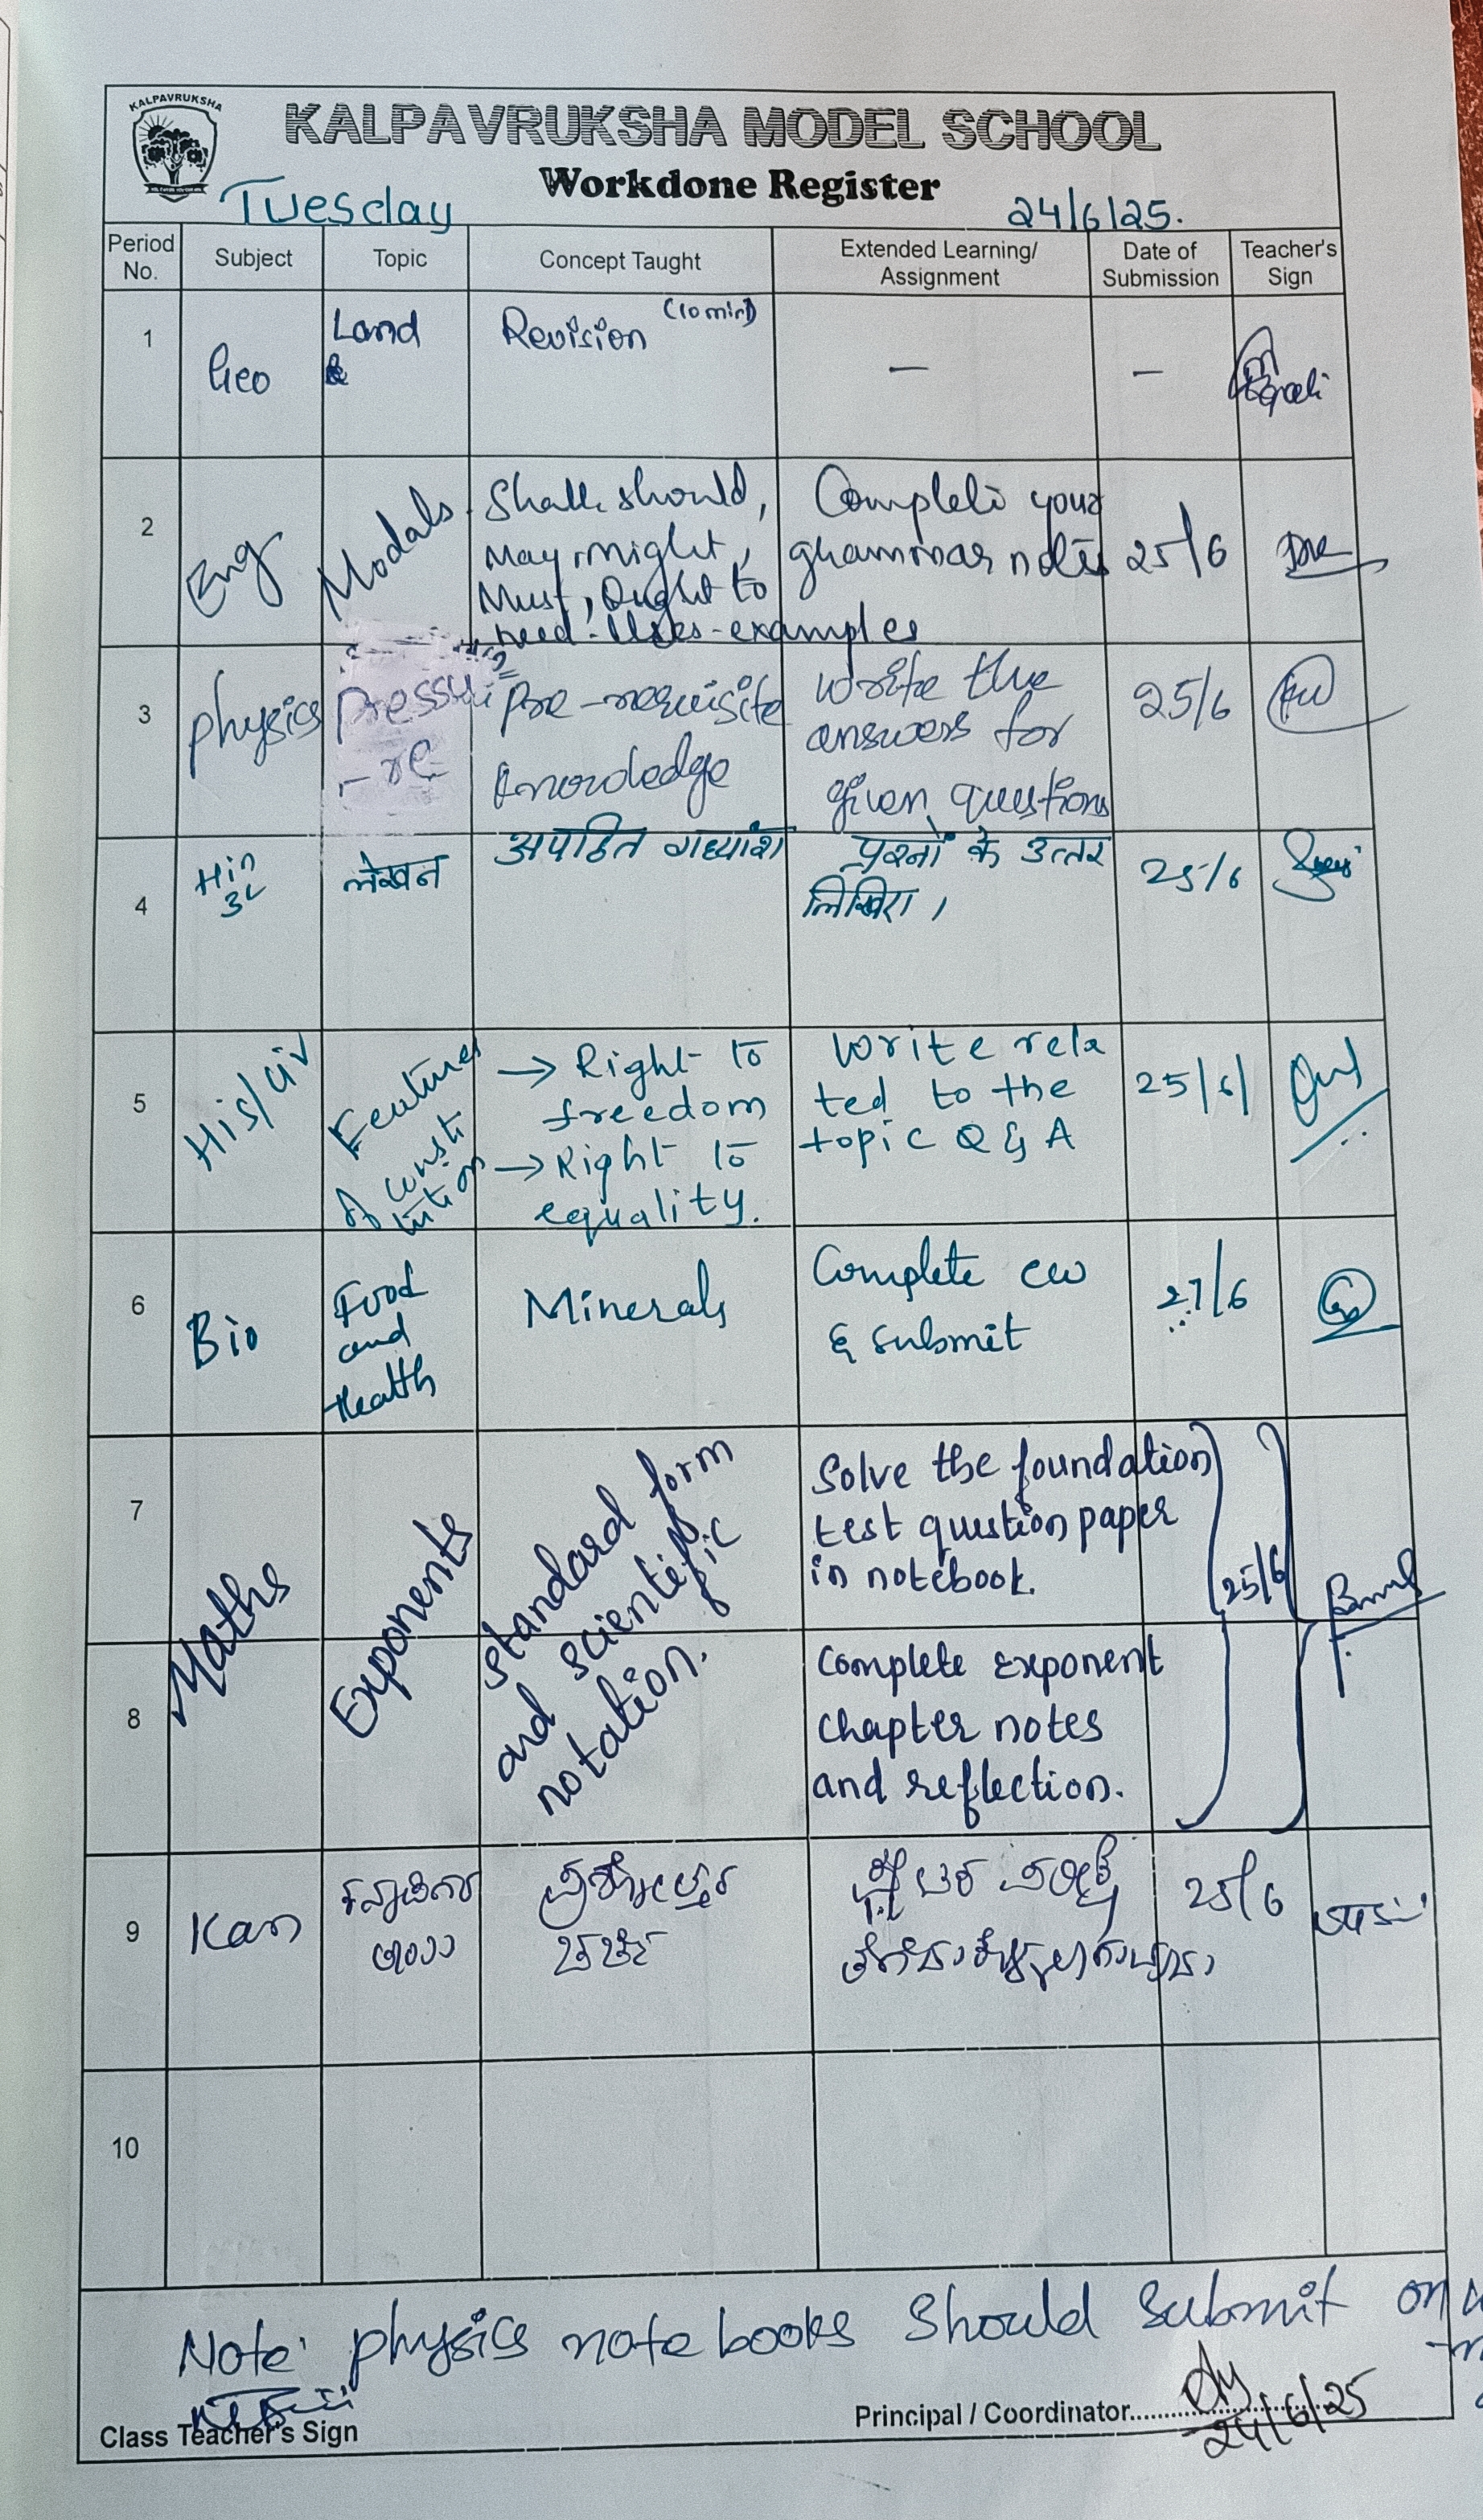 KALPAVRUKSHA
KALPAVRUKSHA MODEL SCHOOL
Workdone Register
Tuesday 24/6/25.
Period No. Subject Topic Concept Taught Extended Learning/ Assignment Date of Submission Teacher's Sign
1 Geo Land & Revision (10 min) — —
2 Eng Modals. Shall, should,
May, might,
Must, Ought to
need - Uses - examples
Complete your
grammar notes
25/6
3 physics Pressu
- re
Pre-requisite
knowledge
write the
answers for
given questions
25/6
4 Hin
3L
लेखन
अपठित गद्यांश
प्रश्नों के उत्तर
लिखिए।
25/6
5 His/civ Features
of consti
tution
→ Right to
freedom
→ Right to
equality.
Write rela
ted to the
topic Q & A
25/6/
6 Bio Food
and
Health
Minerals
Complete cw
& submit
27/6
7
8
Maths
Exponents
standard form
and scientific
notation.
Solve the foundation
test question paper
in notebook.
Complete exponent
chapter notes
and reflection.
25/6
9 Kan
ಚರ್ಚೆ
25/6
10
Note: physics notebooks should submit on
Class Teacher's Sign
Principal / Coordinator
24/6/25